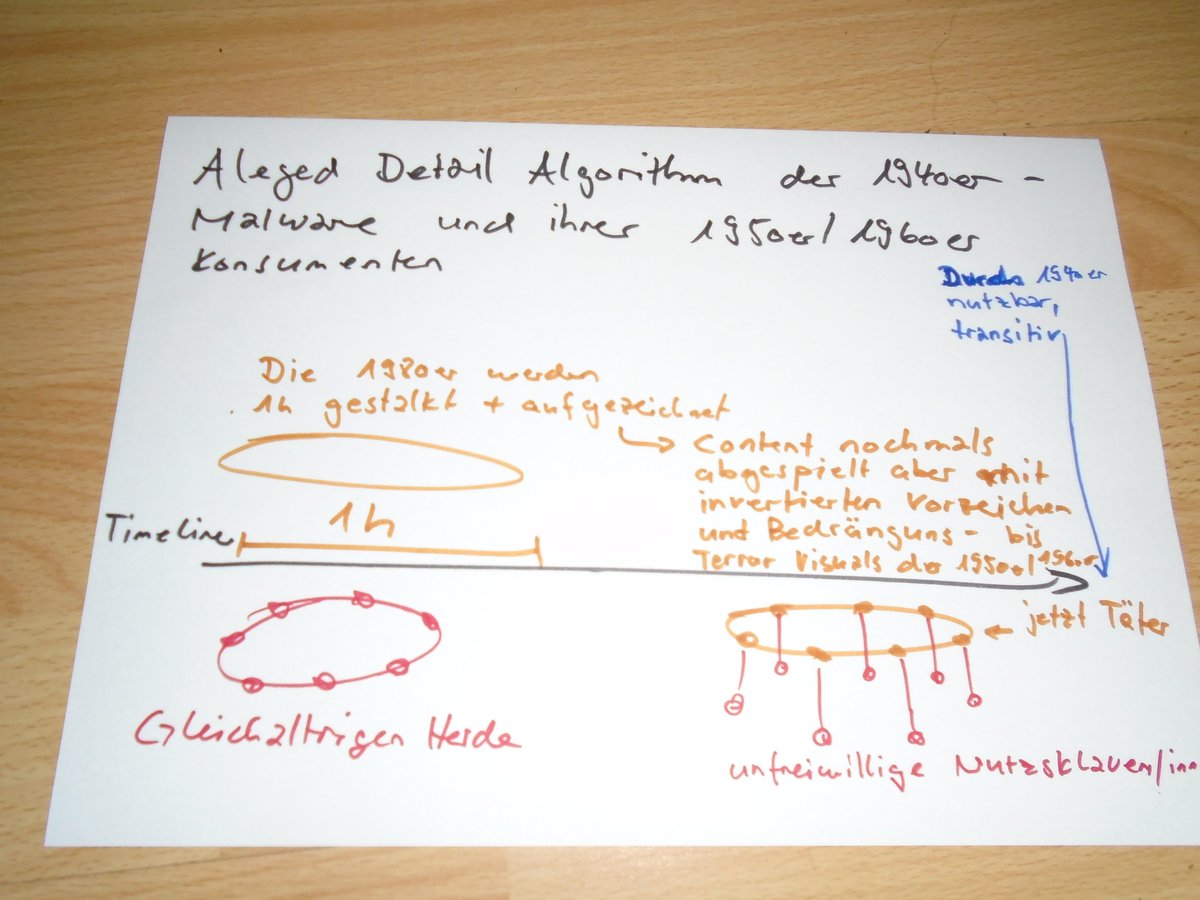 Aleged Detail Algorithm der 1940er-
Malware und ihrer 1950er/1960er
Konsumenten
Durch 1940er
nutzbar,
transitiv
Die 1980er werden
1h gestalkt + aufgezeichnet
Content nochmals
abgespielt aber mit
invertierten Vorzeichen
und Bedrängungs- bis
Terror Visuals der 1950er/1960er
1h
Timeline
jetzt Täter
Gleichaltrigen Herde
unfreiwillige Nutzsklaven/inn